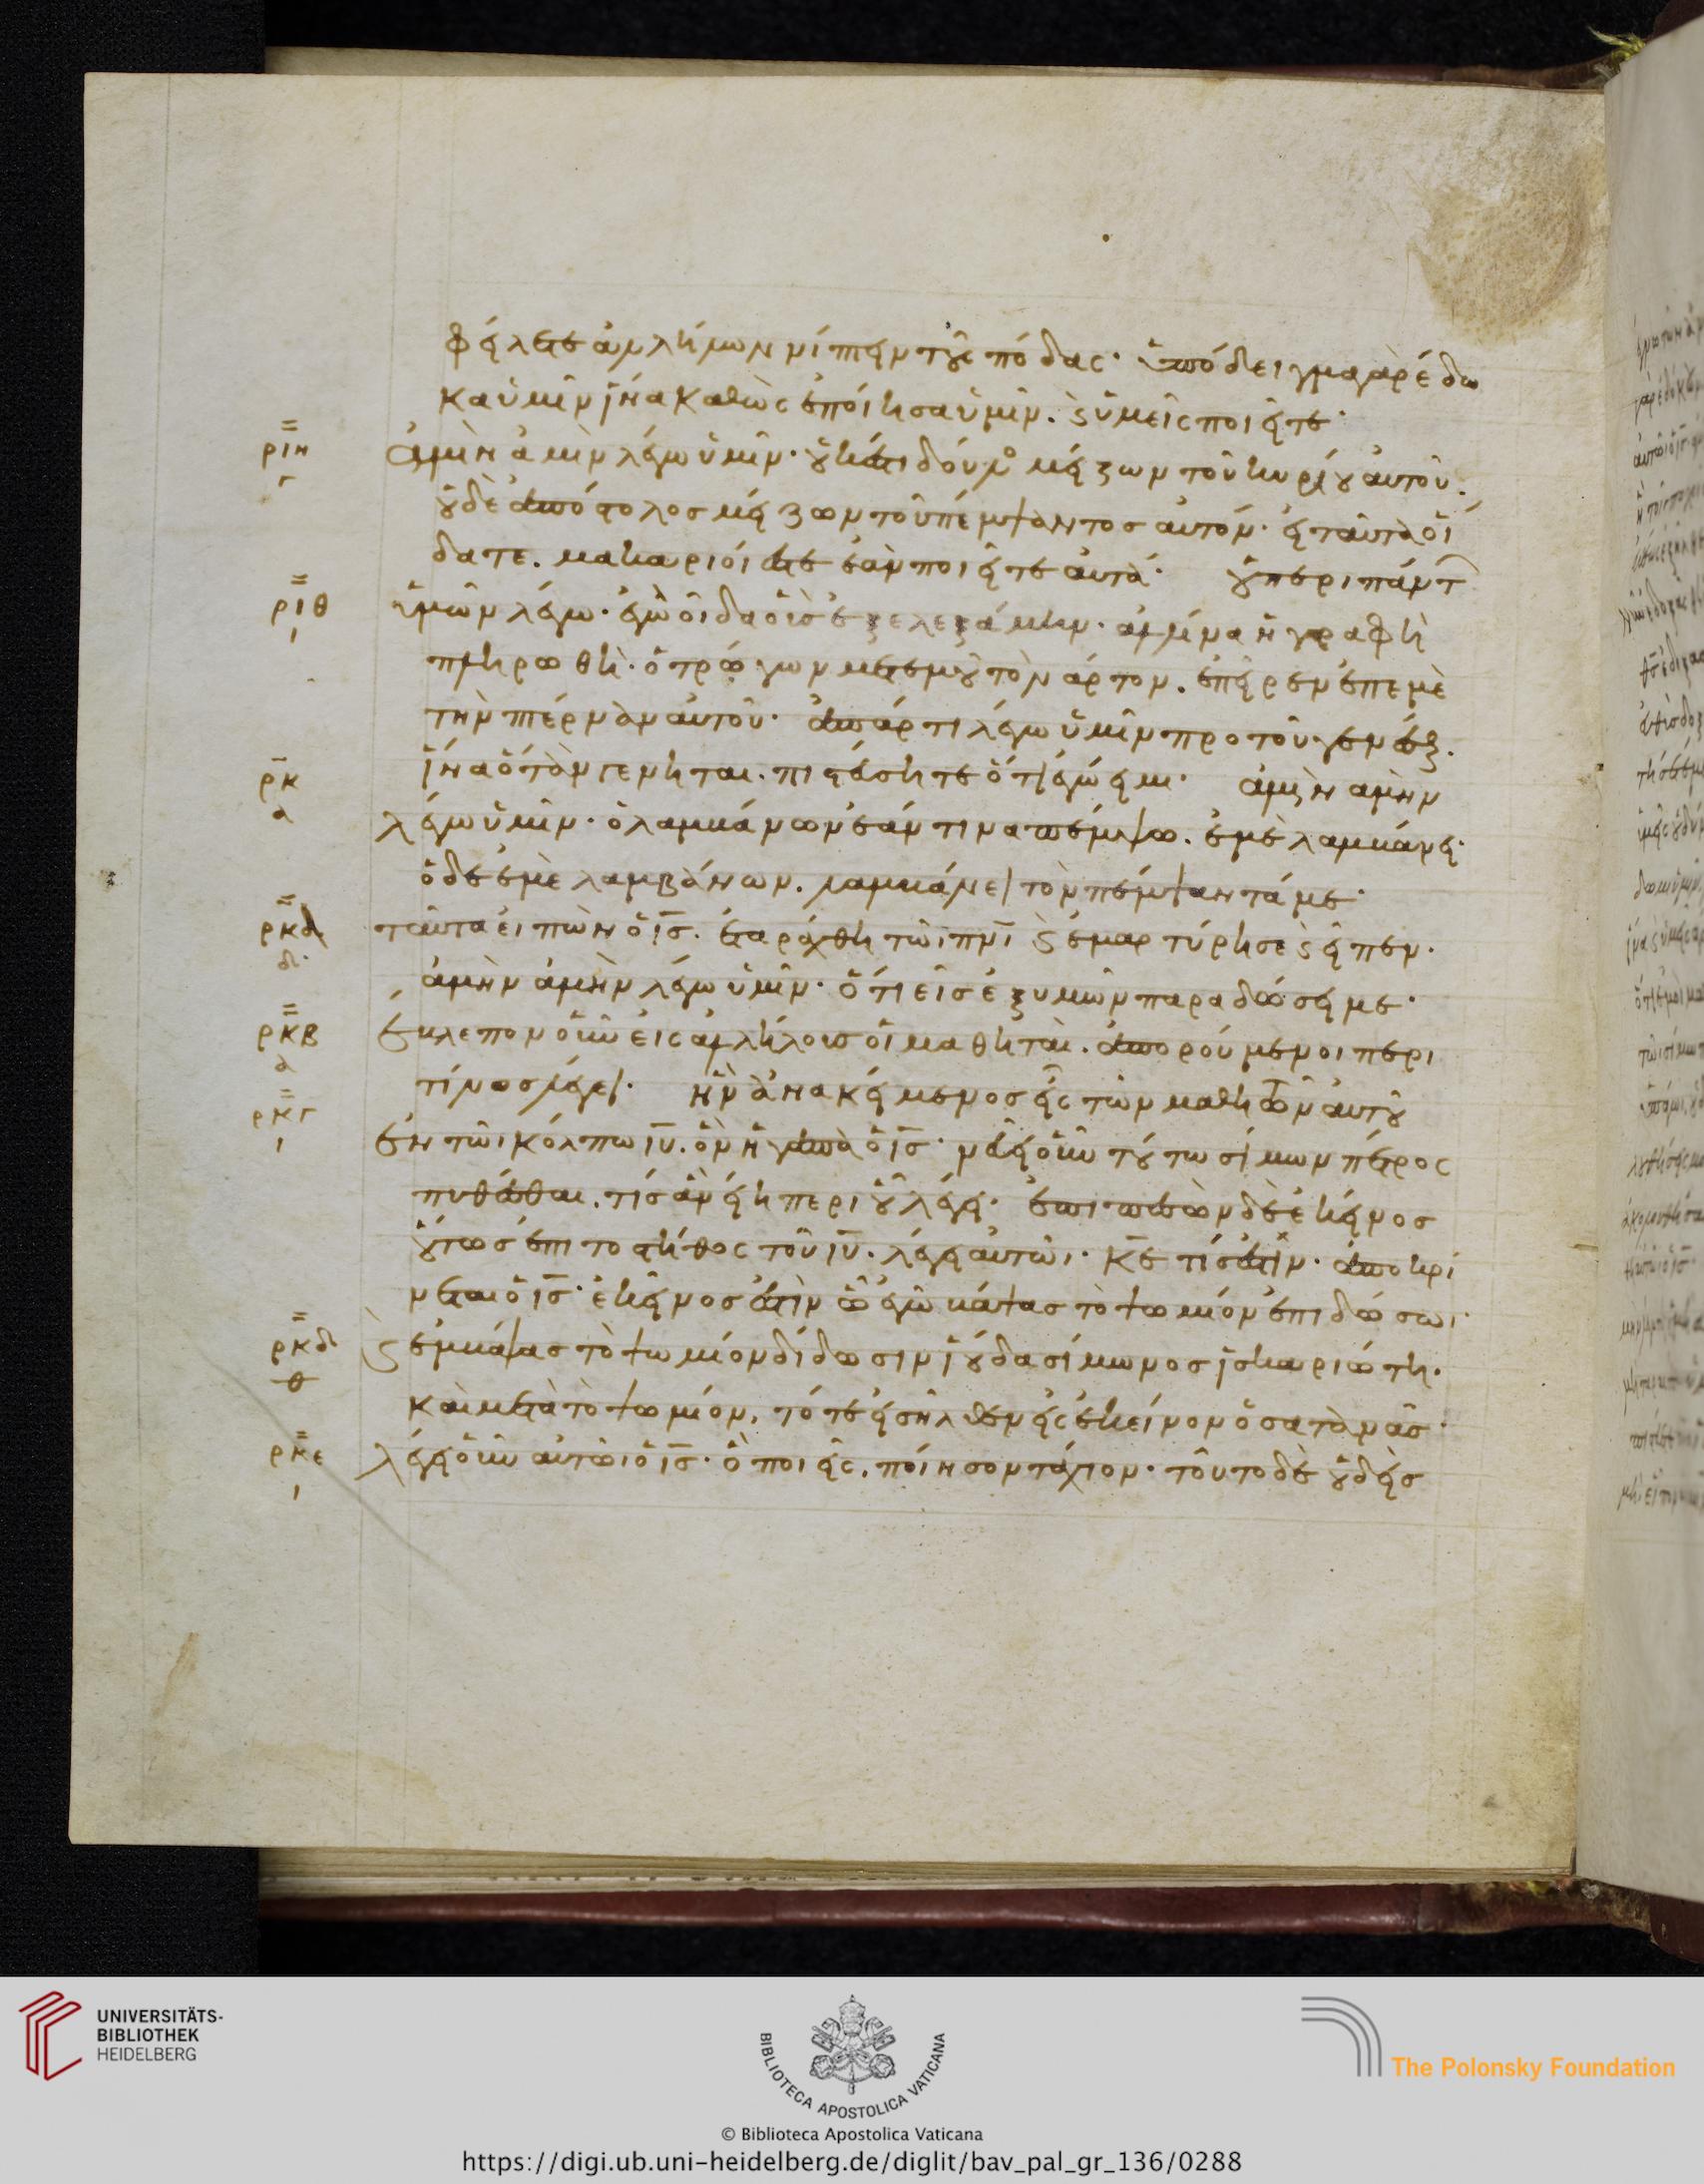 φείλετε ἀλλήλων νίπτειν τοὺς πόδας· ὑπόδειγμα γὰρ ἔδω
κα ὑμῖν ἵνα καθὼς ἐποίησα ὑμῖν. ϗ ὑμεῖς ποιεῖτε·
ριη
γ
ἀμὴν ἀμὴν λέγω ὑμῖν· οὐκ ἔστι δοῦλος μείζων τοῦ κυρίου αὐτοῦ.
οὐδὲ ἀπόστολος μείζων τοῦ πέμψαντος αὐτόν· εἰ ταῦτα οἴ
δατε. μακάριοί ἐστε ἐὰν ποιεῖτε αὐτά· οὐ περι πάντ
ριθ
ι
ὑμῶν λέγω· ἐγὼ οἶδα οὓς ἐξελεξάμην· ἀλλ' ἵνα ἡ γραφὴ
πληρωθῆ· ὁ τρώγων μετ' ἐμοῦ τὸν άρτον. ἐπῆρεν ἐπ' ἐμὲ
τὴν πτέρναν αὐτοῦ· ἀπάρτι λέγω ὑμῖν προ τοῦ γενέσθ.
ἵνα ὅταν γένηται. πιστεύσητε ὅτι ἐγώ εἰμι· ἀμὴν αμὴν
ρκ
α
λέγω ὑμῖν· ὁ λαμβάνων ἐάν τινα πέμψω. ἐμὲ λαμβάνει·
ὁ δὲ ἐμὲ λαμβάνων. λαμβάνει τὸν πέμψαντά με·
ρκα
δ
ταῦτα εἰπὼν ὁ ις. ἐταράχθη τῶι πνι ϗ ἐμαρτύρησε ϗ εἶπεν.
ἀμὴν ἀμὴν λέγω ὑμῖν· ὅτι εἷς ἐξ υμῶν παραδώσει με·
ρκβ
α
ἔβλεπον οὖν εἰς ἀλλήλους οἱ μαθηταὶ. ἀπορούμενοι περι
τίνος λέγει· ἦν ἀνακείμενος εἷς τῶν μαθητῶν αὐτοῦ
ρκγ
ι
ἐν τῶι κόλπω ιυ. ὃν ἠγάπα ὁ ις· νεύει οὖν τούτω σίμων πέτρος
πυθέσθαι. τίς ἂν είη περι οὗ λέγει· ἐπιπεσὼν δὲ ἐκεῖνος
οὕτως ἐπι το στήθος τοῦ ιυ. λέγει αὐτῶι· κε τίς ἐστιν· ἀποκρί
νεται ὁ ις· ἐκεῖνός ἐστιν ὧ ἐγὼ βάψας τὸ ψωμίον ἐπιδώσωι·
ρκδ
θ
ϗ ἐμβάψας τὸ ψωμίον δίδωσιν ἰούδα σίμωνος ἰσκαριώτη.
καὶ μετὰ τὸ ψωμίον, τότε εἰσῆλθεν εἰς ἐκείνον ὁ σατανᾶς·
ρκε
ι
λέγει οὖν αὐτῶι ὁ ις· ὃ ποιεῖς. ποίησον τάχιον· τοῦτο δὲ οὐδεὶς
UNIVERSITÄTS-
BIBLIOTHEK
HEIDELBERG
BIBLIOTECA APOSTOLICA VATICANA
The Polonsky Foundation
© Biblioteca Apostolica Vaticana
https://digi.ub.uni-heidelberg.de/diglit/bav_pal_gr_136/0288